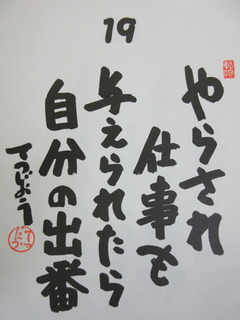 19
やらされ
仕事を
与えられたら
自分の出番
てつじょう